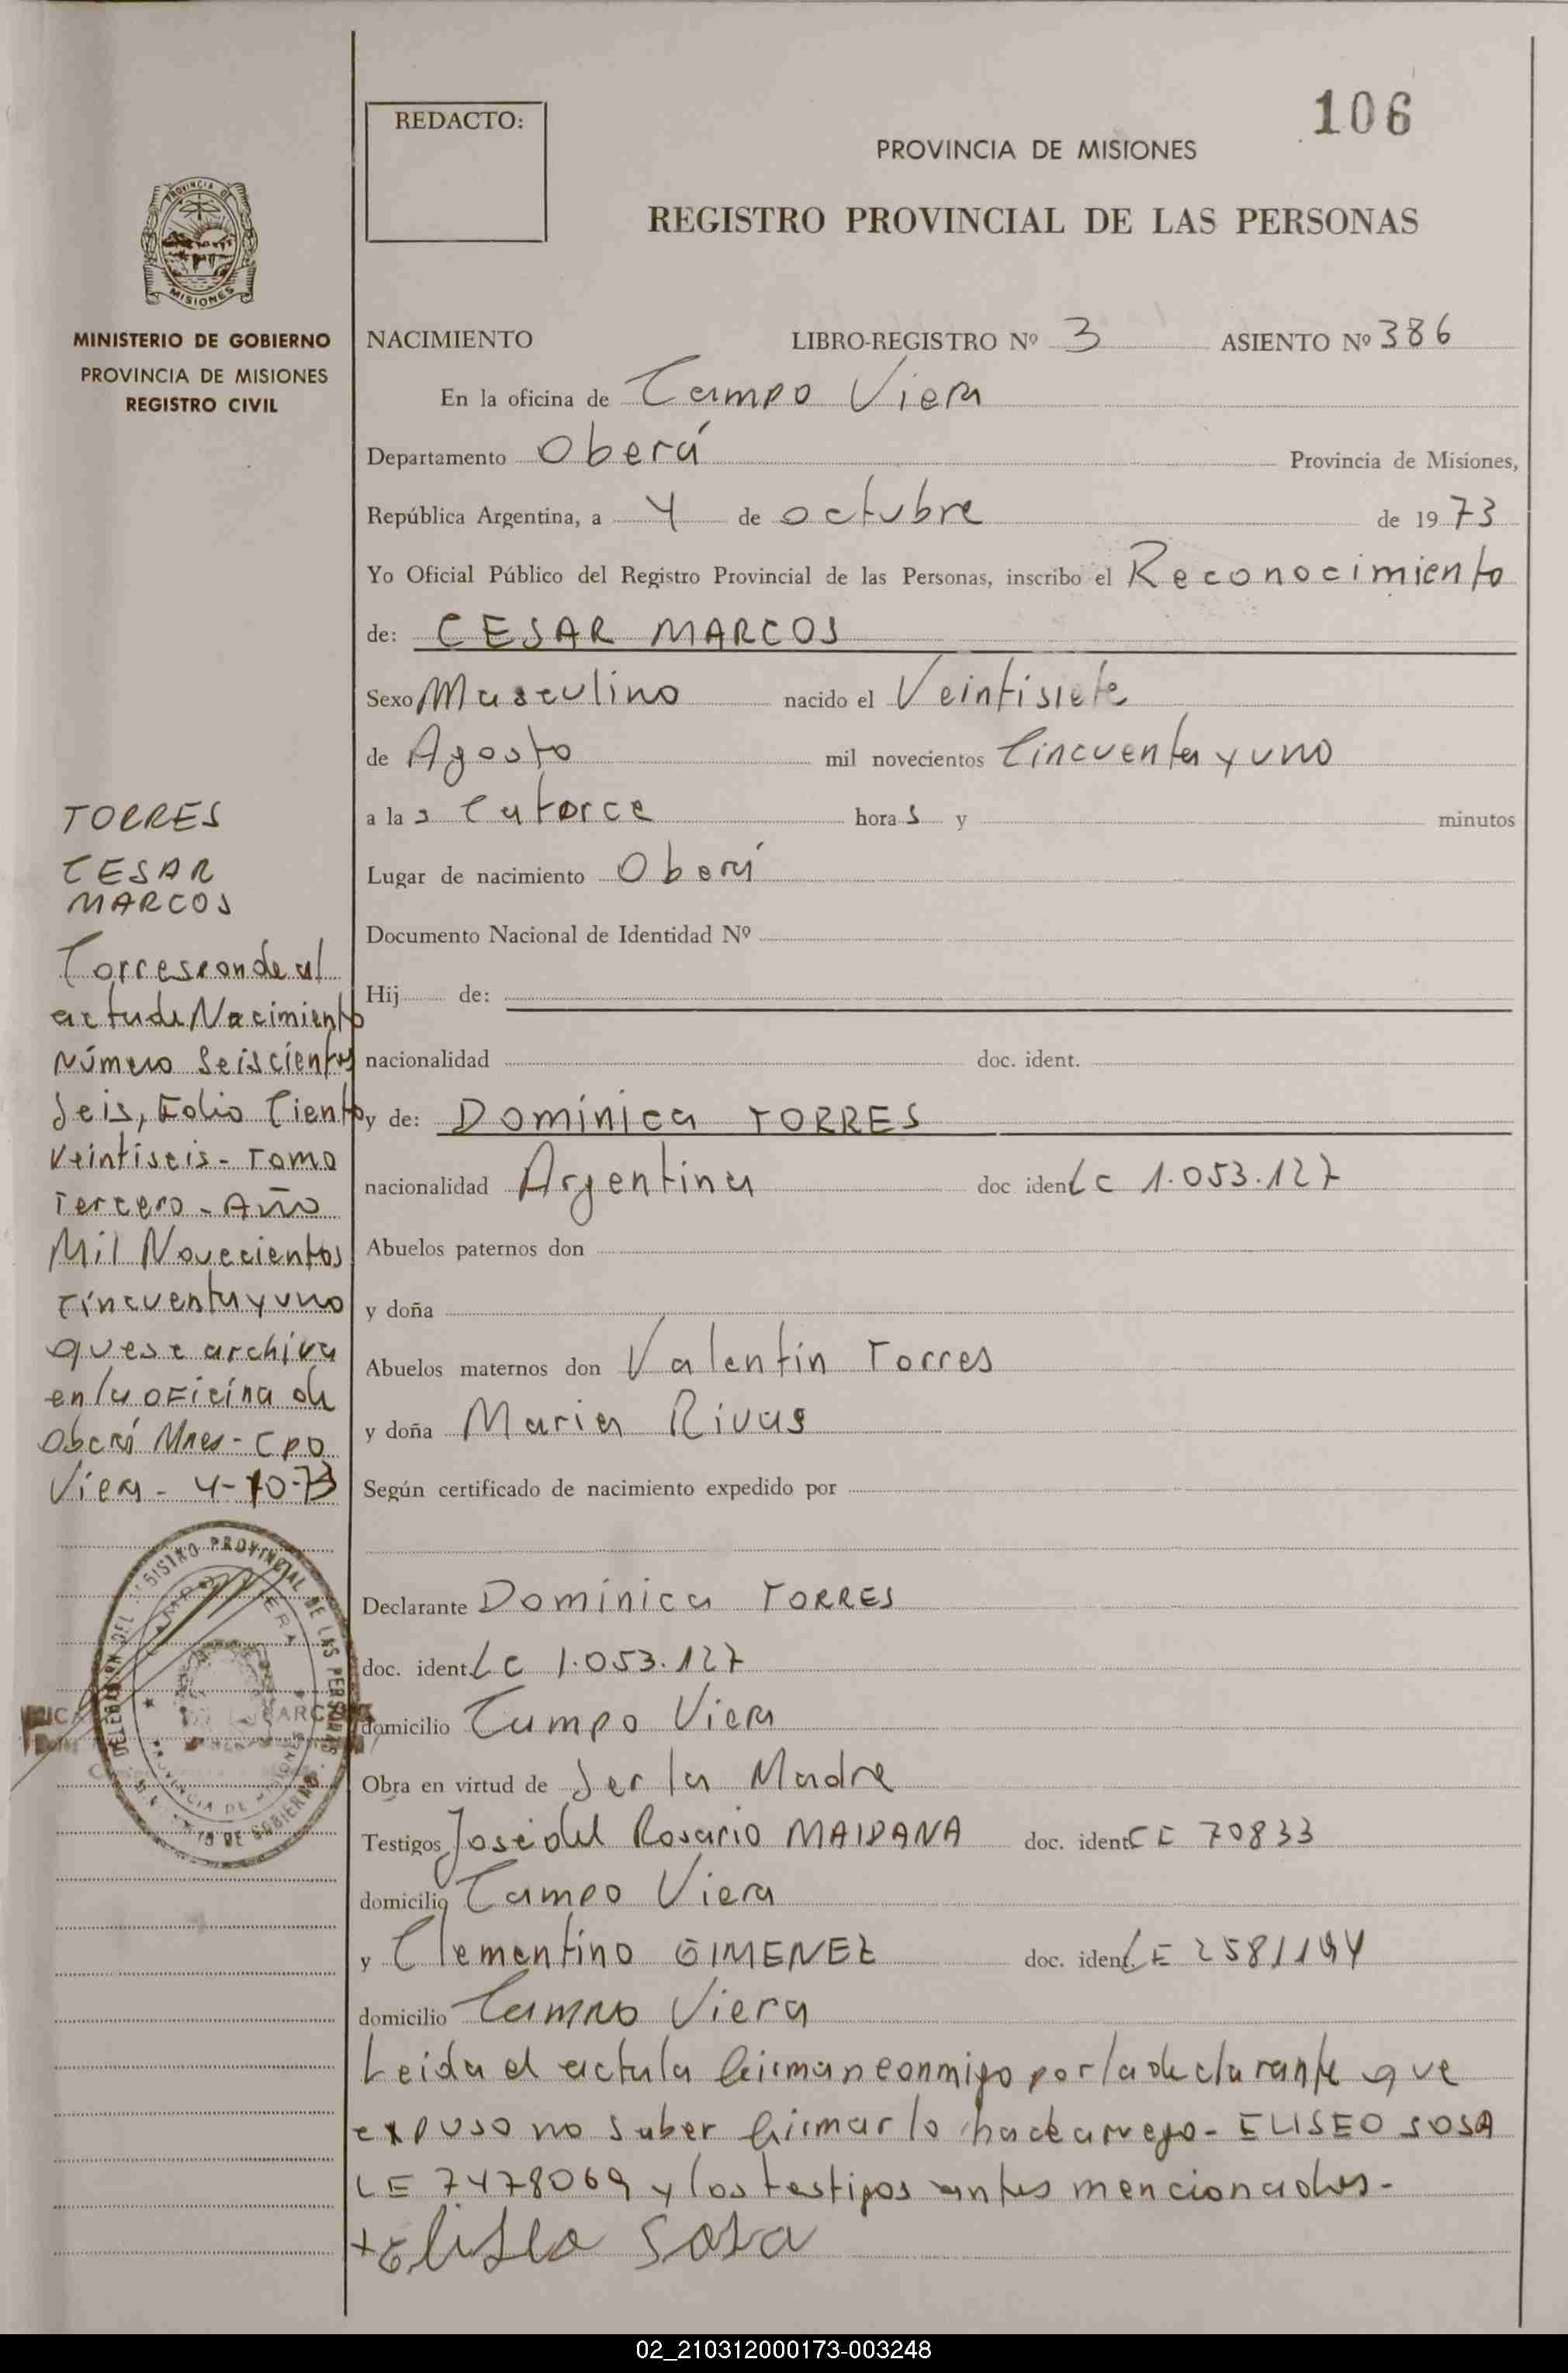 REDACTO:
106
PROVINCIA DE MISIONES
REGISTRO PROVINCIAL DE LAS PERSONAS
PROVINCIA DE
MISIONES
MINISTERIO DE GOBIERNO
PROVINCIA DE MISIONES
REGISTRO CIVIL
NACIMIENTO LIBRO-REGISTRO Nº 3 ASIENTO Nº 386
En la oficina de Campo Viera
Departamento Oberá Provincia de Misiones,
República Argentina, a 4 de octubre de 1973
Yo Oficial Público del Registro Provincial de las Personas, inscribo el Reconocimiento
de: CESAR MARCOS
Sexo Masculino nacido el Veintisiete
de Agosto mil novecientos Cincuenta y uno
a las Catorce horas y minutos
Lugar de nacimiento Oberá
Documento Nacional de Identidad Nº
Hij de:
nacionalidad doc. ident.
y de: Dominica TORRES
nacionalidad Argentina doc ident LC 1.053.127
Abuelos paternos don
y doña
Abuelos maternos don Valentín Torres
y doña Maria Rivas
Según certificado de nacimiento expedido por
Declarante Dominica TORRES
doc. ident. LC 1.053.127
domicilio Campo Viera
Obra en virtud de Ser la Madre
Testigos José del Rosario MAIDANA doc. ident. CE 70833
domicilio Campo Viera
y Clementino GIMENEZ doc. ident. LE 2581194
domicilio Campo Viera
Leida el acta la firman conmigo por la declarante que
expuso no saber firmar lo hace a ruego - ELISEO SOSA
LE 7478069 y los testigos antes mencionados -
+ Eliseo Sosa
TORRES
CESAR
MARCOS
Corresponde al
acta de Nacimiento
Número Seiscientos
Seis, Folio Ciento
Veintiseis - Tomo
Tercero - Año
Mil Novecientos
Cincuenta y uno
que se archiva
en la oficina de
Oberá Mnes - CPO
Viera - 4-10-73
DELEGACION DEL REGISTRO PROVINCIAL DE LAS PERSONAS
CAMPO VIERA
PROVINCIA DE MISIONES
MINISTERIO DE GOBIERNO
02_210312000173-003248